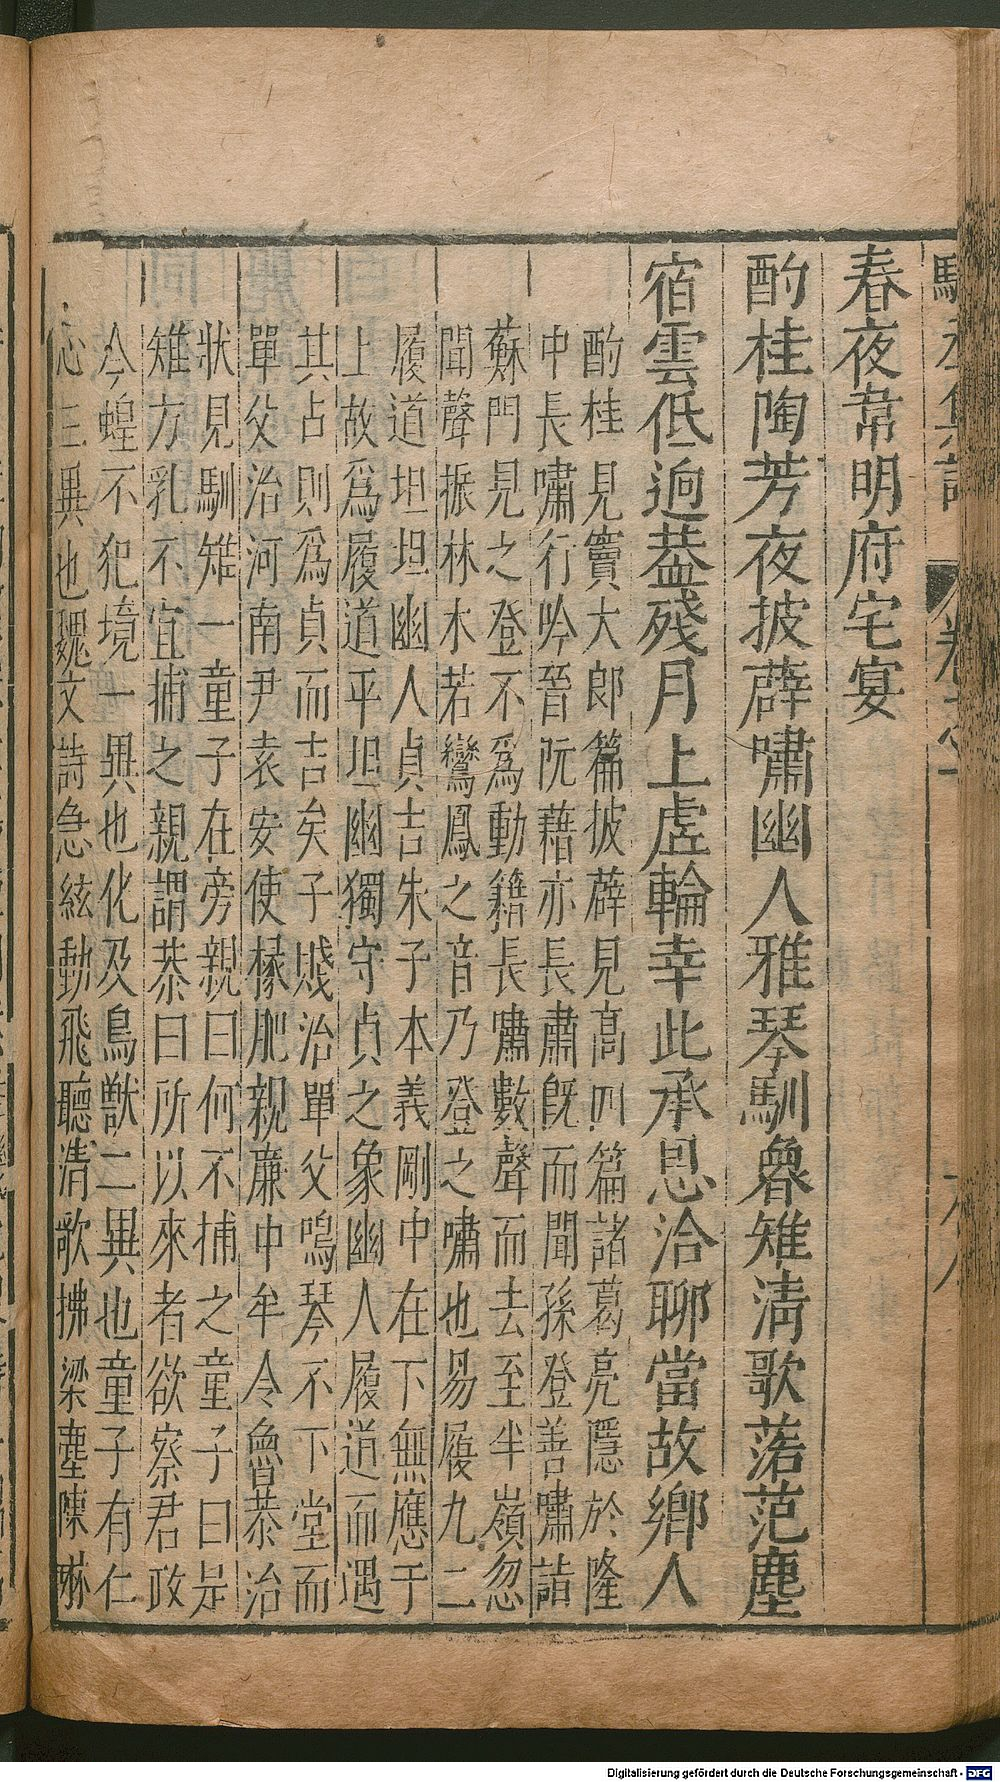 春夜韋明府宅宴
酌桂陶芳夜披薜嘯幽人雅琴馴魯雉清歌落范塵
宿雲低迥蓋殘月上虛輪幸此承恩洽聊當故鄉人
酌桂見竇大郎篇披薜見高四篇諸葛亮隱於隆
中長嘯行吟晉阮藉亦長肅旣而聞孫登善嘯詣
蘇門見之登不爲動籍長嘯數聲而去至半嶺忽
聞聲振林木若鸞鳳之音乃登之嘯也易履九二
履道坦坦幽人貞吉朱子本義剛中在下無應于
上故爲履道平坦幽獨守貞之象幽人履道而遇
其占則爲貞而吉矣子賤治單父鳴琴不下堂而
單父治河南尹袁安使椽肥親廉中牟令魯恭治
狀見馴雉一童子在旁親曰何不捕之童子曰是
雉方乳不宜捕之親謂恭曰所以來者欲察君政
今蝗不犯境一異也化及鳥獸二異也童子有仁
心三異也魏文詩急絃動飛聽清歌拂梁塵陳琳
Digitalisierung gefördert durch die Deutsche Forschungsgemeinschaft - DFG